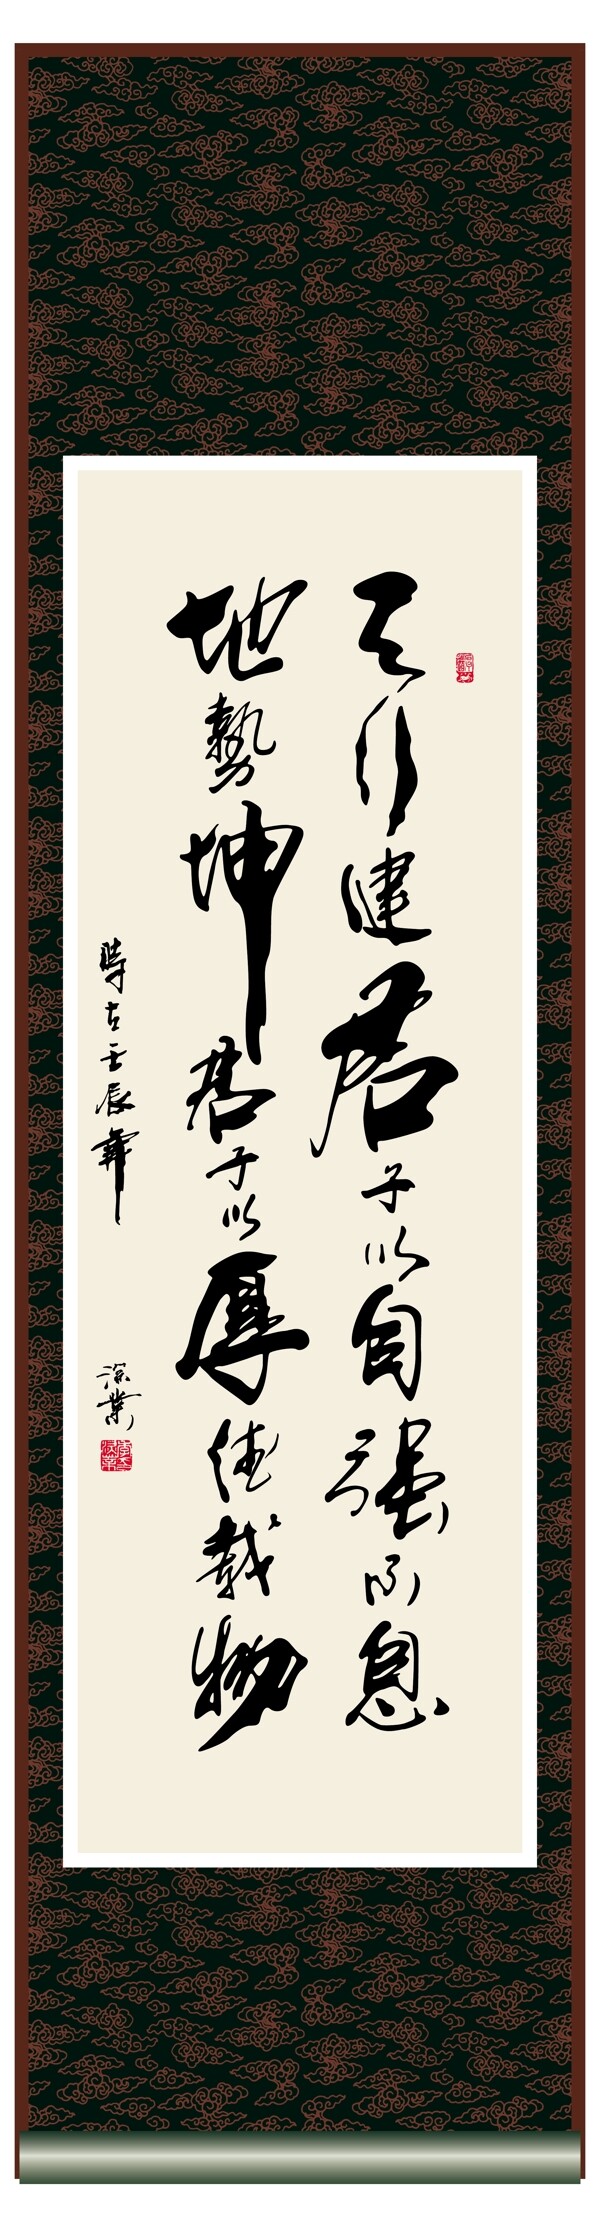 天行健君子以自强不息
地勢坤君子以厚德載物
時在壬辰年
深業